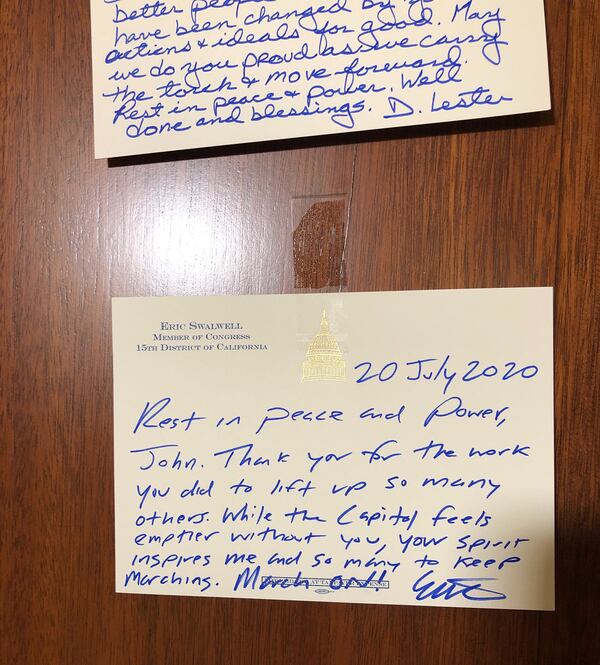 better people
have been changed by
actions & ideals for good. May
we do you proud as we carry
the torch & move forward.
Rest in peace & power. Well
done and blessings. D. Lester
ERIC SWALWELL
MEMBER OF CONGRESS
15TH DISTRICT OF CALIFORNIA
20 July 2020
Rest in peace and Power,
John. Thank you for the work
you did to lift up so many
others. While the Capitol feels
emptier without you, your spirit
inspires me and so many to keep
marching. March on!!